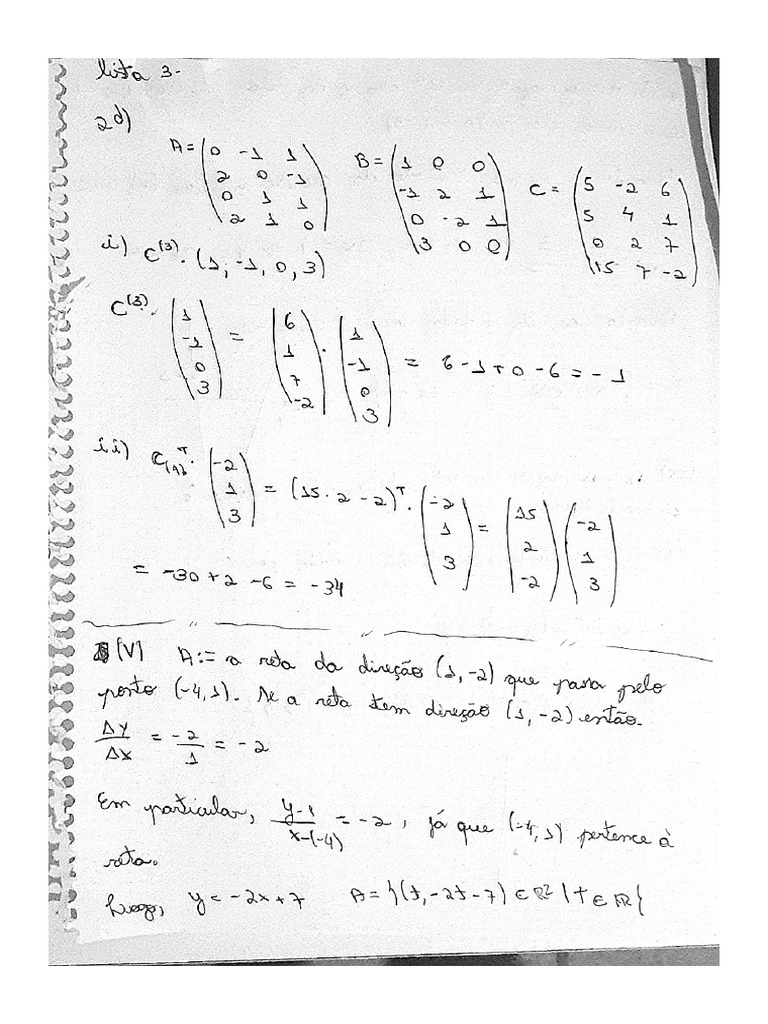 lista 3-
2d)
A = (0 -1 1
2 0 -1
0 1 1
2 1 0)
B = (1 0 0
-1 2 1
0 -2 1
3 0 0)
C = (5 -2 6
5 4 1
0 2 7
15 7 -2)
i) C^(3) . (1, -1, 0, 3)
C^(3) . (1 -1 0 3) = (6 1 7 -2) . (1 -1 0 3) = 6 - 1 + 0 - 6 = - 1
ii) . (-2 1 3) = (15 . 2 - 2)^T . (-2 1 3) = (15 2 -2) (-2 1 3)
= -30 + 2 - 6 = -34
(V) A:= a reta da direção (1, -2) que passa pelo
ponto (-4, 1). Se a reta tem direção (1, -2) então.
ΔY/ΔX = -2/1 = -2
Em particular, y-1/x-(-4) = -2, já que (-4, 1) pertence à
reta.
Logo, y = -2x + 7 A = }(t, -2t - 7) ∈ R² | t ∈ R{